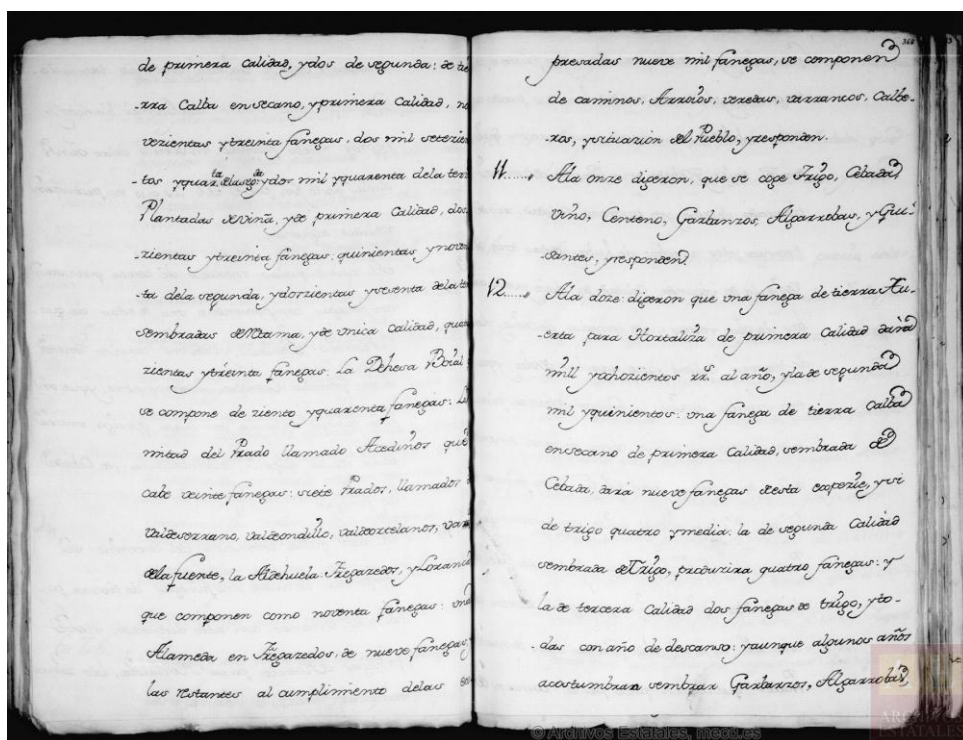 de primera Calidad, ydos de segunda: de tie
-rra Calba en secano, yprimera Calidad, no
vezientas ytreinta fanegas, dos mil setezien
-tos yquarta. dela segda. ydos mil yquarenta dela ter
Plantadas de Viña, yde primera Calidad, dos
-zientas ytreinta fanegas: quinientas ynoven
-ta dela segunda, ydoszientas ysesenta dela te
sembradas de Retama, yde Vnica Calidad, quat
zientas ytreinta fanegas: La Dehesa Boial
se compone de ziento yquarenta fanegas: La
mitad del Prado llamado Azedinos que
cabe veinte fanegas: siete Prados, llamados
Valdeserrano, Valdeondillo, Valdorcelanos,
dela fuente, la Aldehuela Fregazedos, y Loranca
que componen como noventa fanegas: vna
Alameda en Fregazedos, de nueve fanegas,
las restantes al cumplimiento delas
368
presadas nueve mil fanegas, se componen
de caminos, Arroios, veredas, varrancos, Calbe-
-ros, ysituazion del Pueblo, yresponden.
11...... Ala onze dijeron, que se coge Trigo, Cebada
Vino, Centeno, Garbanzos, Algarrobas, y Gui-
santes, yresponden.
12...... Ala doze dijeron que vna fanega de tierra Hu-
-erta para Hortaliza de primera Calidad dará
mill yochozientos rrs. al año, yla de segunda
mil yquinientos: vna fanega de tierra Calba
en secano de primera Calidad, sembrada de
Cebada, dará nueve fanegas de esta expezie, ysi
de trigo quatro ymedia: la de segunda Calidad
sembrada de Trigo, produzira quatro fanegas: y
la de tercera Calidad dos fanegas de trigo, yto-
-das con año de descanso: yaunque algunos años
acostumbran sembrar Garbanzos, Algarrobas,
© Archivos Estatales, mecd.es
ARCHIVOS
ESTATALES